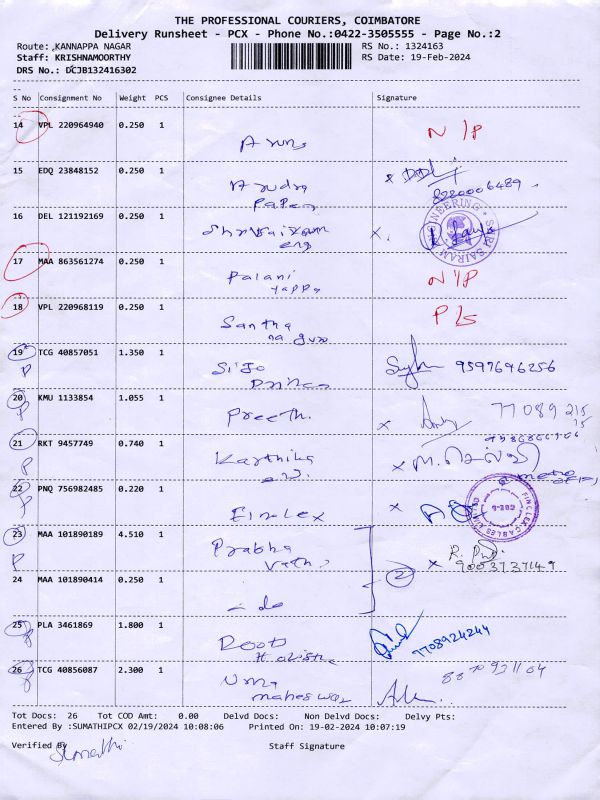 THE PROFESSIONAL COURIERS, COIMBATORE
Delivery Runsheet - PCX - Phone No.:0422-3505555 - Page No.:2
Route: KANNAPPA NAGAR RS No.: 1324163
Staff: KRISHNAMOORTHY RS Date: 19-Feb-2024
DRS No.: DCJB132416302
S No Consignment No Weight PCS Consignee Details Signature
14 VPL 220964940 0.250 1 N/P
Arun
15 EDQ 23848152 0.250 1
Arudra 8220006489
Papers
16 DEL 121192169 0.250 1
eng
SRI SAIRAM ENGINEERING
17 MAA 863561274 0.250 1
Palani N/P
yappa
18 VPL 220968119 0.250 1 P/s
Santha
na guru
19 TCG 40857051 1.350 1
P Sijo 9597696256
Princes
20 KMU 1133854 1.055 1
P Preethi 77089 215
15
21 RKT 9457749 0.740 1
P Karthika
22 PNQ 756982485 0.220 1
P Finolex
FINOLEX CABLES LIMITED
23 MAA 101890189 4.510 1
P Prabha
Vathi 9003737149
24 MAA 101890414 0.250 1 2
- do
25 PLA 3461869 1.800 1
P Roots 7708924244
26 TCG 40856087 2.300 1
P Uma
maheswar
Tot Docs: 26 Tot COD Amt: 0.00 Delvd Docs: Non Delvd Docs: Delvy Pts:
Entered By :SUMATHIPCX 02/19/2024 10:08:06 Printed On: 19-02-2024 10:07:19
Verified By Staff Signature
Sumathi